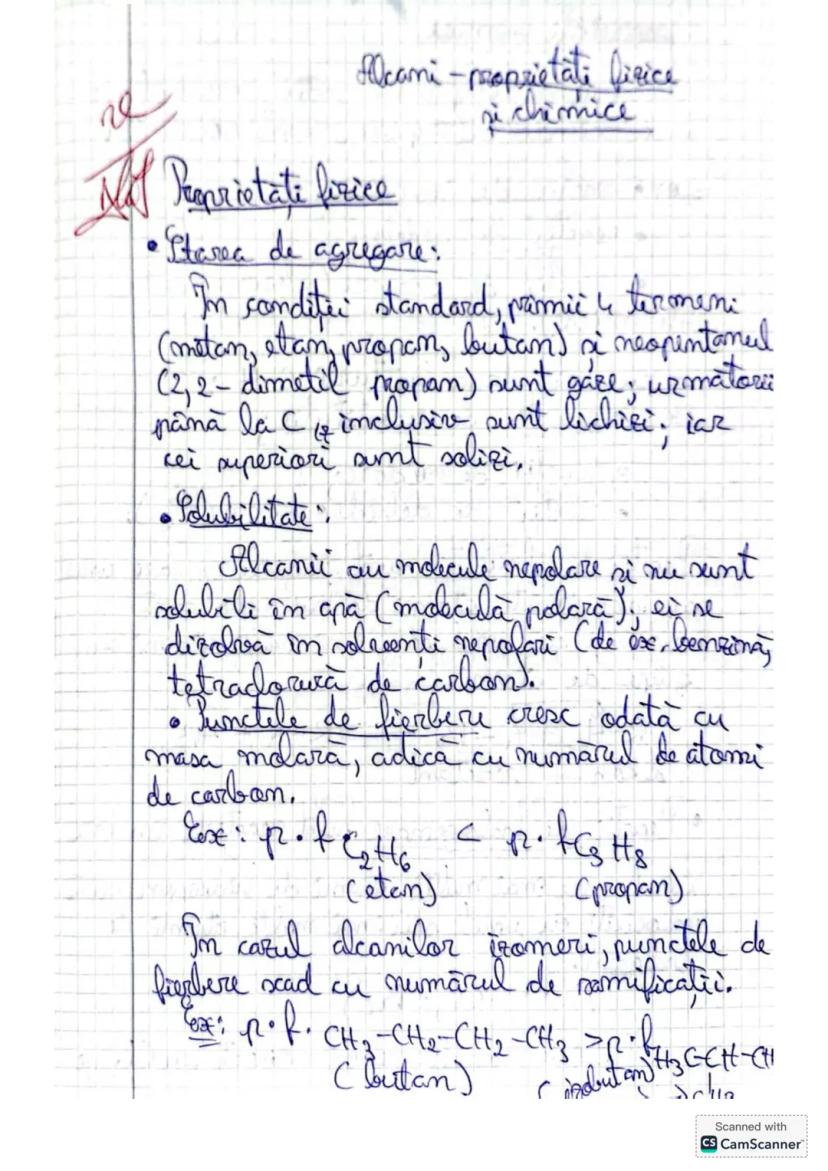 Alcani - proprietăți fizice
și chimice
Proprietăți fizice
• Starea de agregare:
În condiții standard, primii 4 termeni
(metan, etan, propan, butan) și neopentanul
(2,2 - dimetil propan) sunt gaze; următorii
până la C17 inclusiv sunt lichizi; iar
cei superiori sunt solizi.
• Solubilitate:
Alcanii au molecule nepolare și nu sunt
solubili în apă (moleculă polară); ei se
dizolvă în solvenți nepolari (de ex. benzină,
tetraclorură de carbon).
• Punctele de fierbere cresc odată cu
masa molară, adică cu numărul de atomi
de carbon.
Ex: p.f C2H6 < p.f C3H8
(etan) (propan)
În cazul alcanilor izomeri, punctele de
fierbere scad cu numărul de ramificații.
Ex: p.f. CH3-CH2-CH2-CH3 > p.f. H3C-CH-CH
(butan) (izobutan)
Scanned with
CS CamScanner